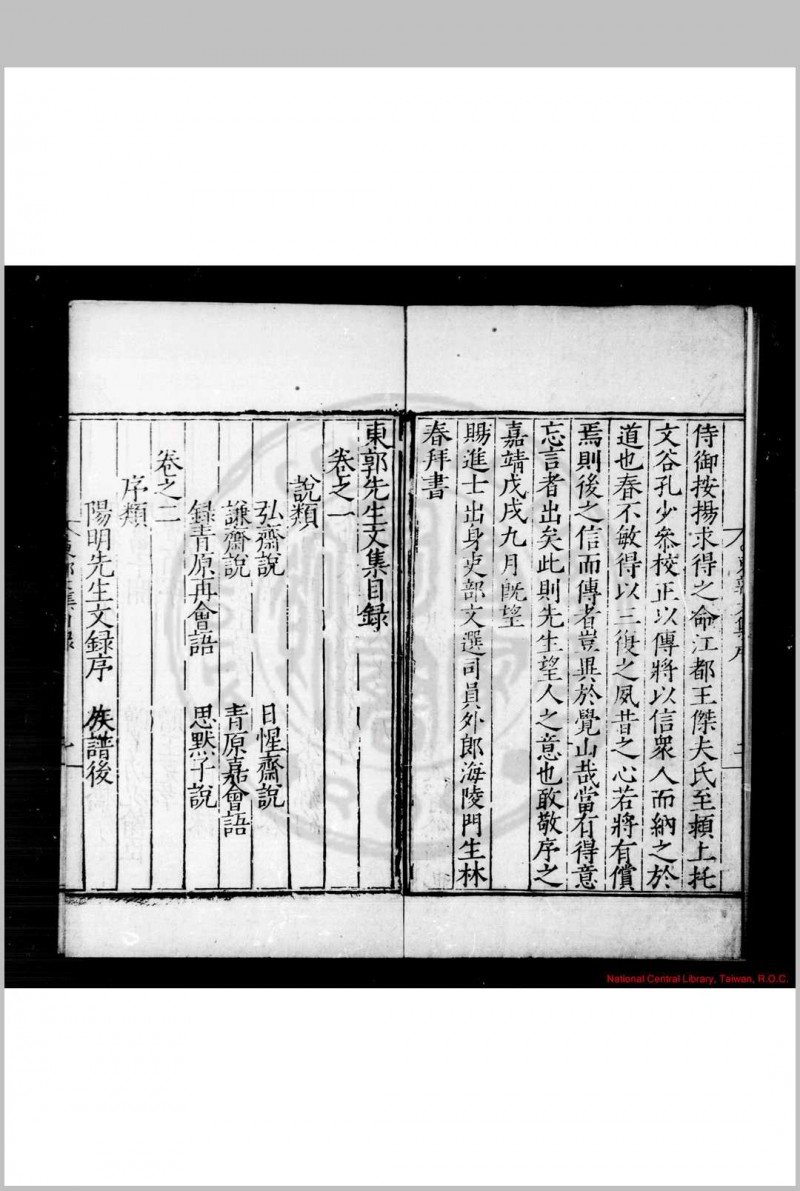 侍御按揚求得之命江都王傑夫氏至頴上托
文谷孔少叅校正以傳將以信衆人而納之於
道也春不敏得以三復之夙昔之心若將有償
焉則後之信而傳者豈異於覺山哉當有得意
忘言者出矣此則先生望人之意也敢敬序之
嘉靖戊戌九月旣望
賜進士出身吏部文選司員外郎海陵門生林
春拜書
東郭先生文集目録
卷之一
說類
弘齋說 日惺齋說
謙齋說 青原嘉會語
録青原再會語 思默子說
卷之二
序類
陽明先生文録序 族譜後
National Central Library, Taiwan, R.O.C.